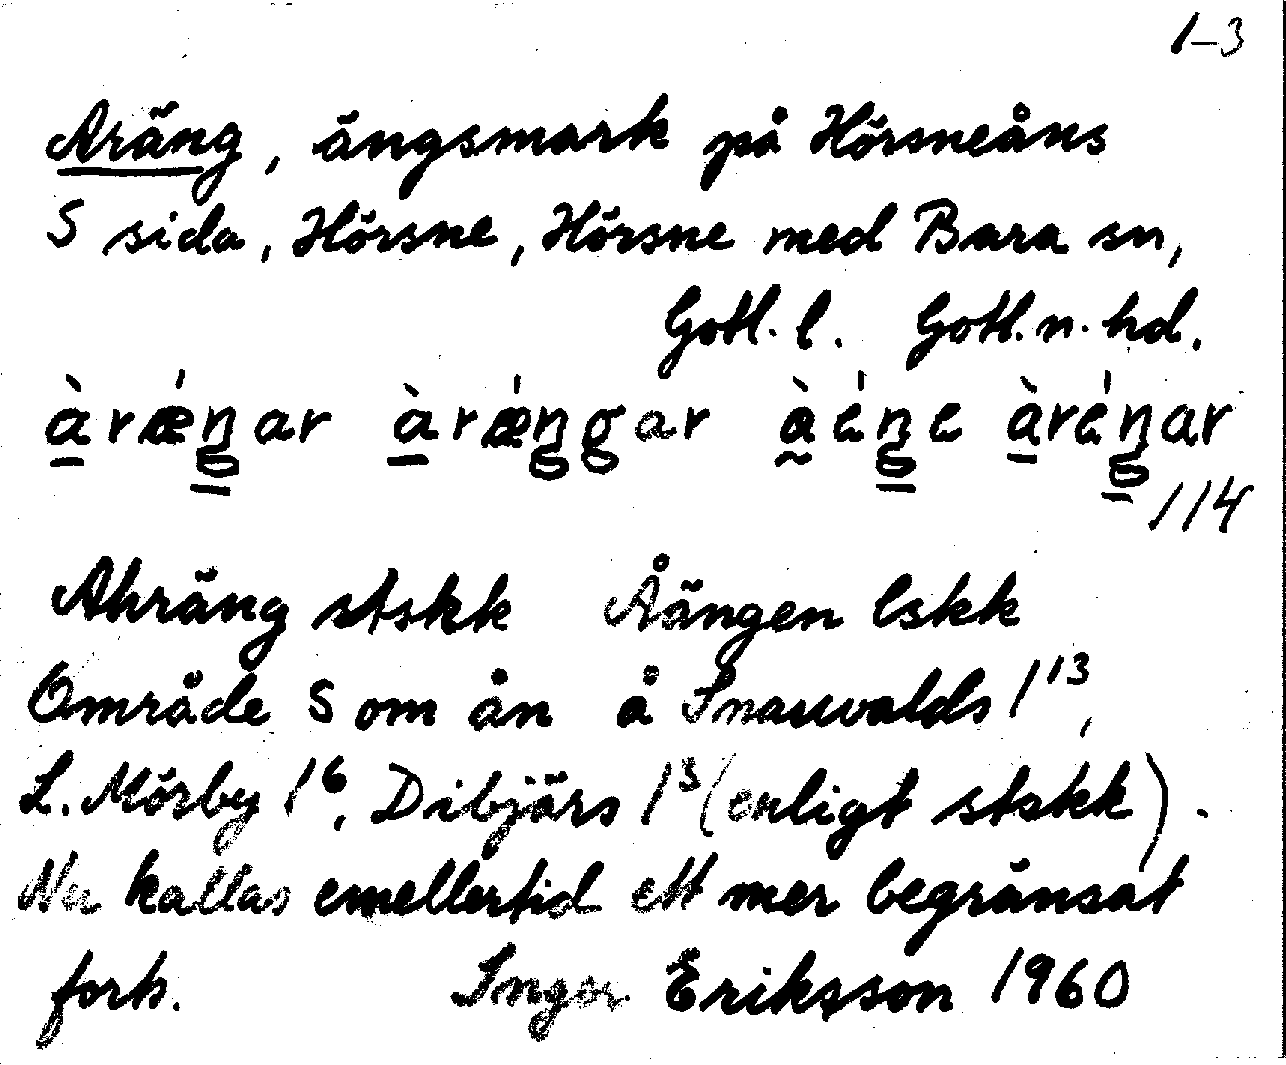 1–3
Aräng, ängsmark på Hörsneåns
S sida, Hörsne, Hörsne med Bara sn,
Gotl. l. Gotl. n. hd.
àrǽŋar àrǽŋgar àéŋe àréŋar
114
Ahräng stskk Åängen lskk
Område S om ån å Snauvalds 1¹³,
L. Mörby 1⁶, Dibjärs 1³ (enligt stskk).
Nu kallas emellertid ett mer begränsat
Inger Eriksson 1960